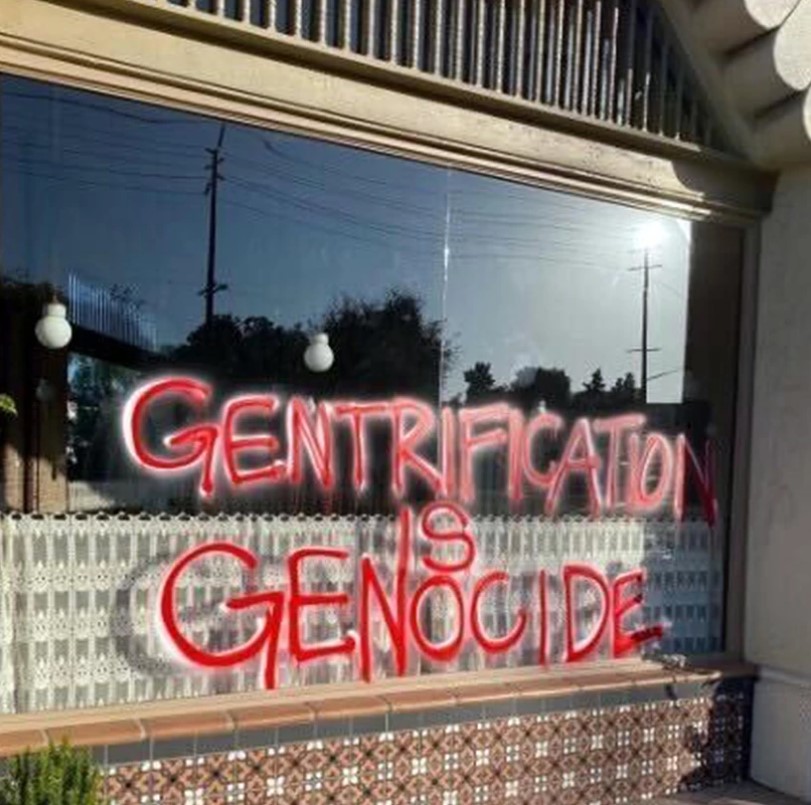 GENTRIFICATION
IS
GENOCIDE